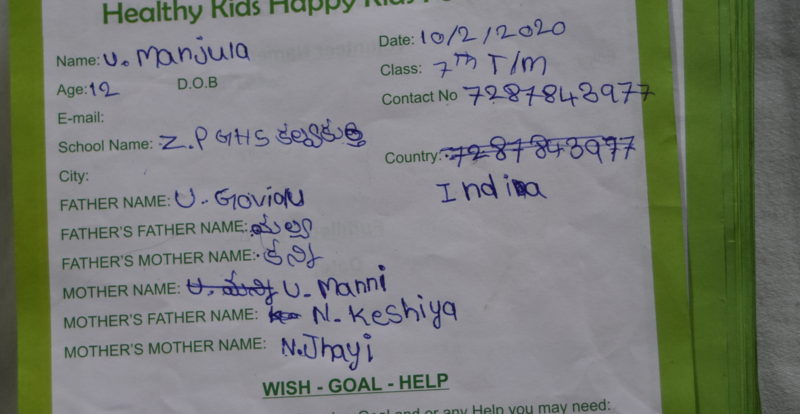 Healthy Kids Happy Kids
Name: U. Manjula
Date: 10/2/2020
Age: 12 D.O.B
Class: 7th T/m
E-mail:
Contact No 7287843977
School Name: Z.P GHS
Country: 7287843977
India
City:
FATHER NAME: U. Govidu
FATHER'S FATHER NAME:
FATHER'S MOTHER NAME:
MOTHER NAME: U. Manni
MOTHER'S FATHER NAME: N. Keshiya
MOTHER'S MOTHER NAME: N. Jhayi
WISH - GOAL - HELP
Goal and or any Help you may need: